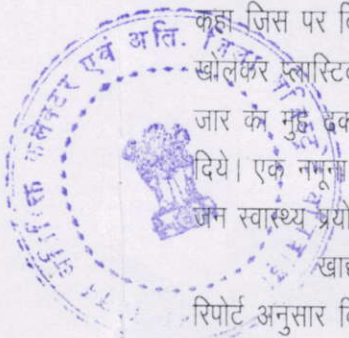 कहा जिस पर वि
खोलकर प्लास्टिक
जार का मुंह ढक
दिये। एक नमूना
जन स्वास्थ्य प्रयो
खाद्य
रिपोर्ट अनुसार वि
कलेक्टर एवं अति. जिला